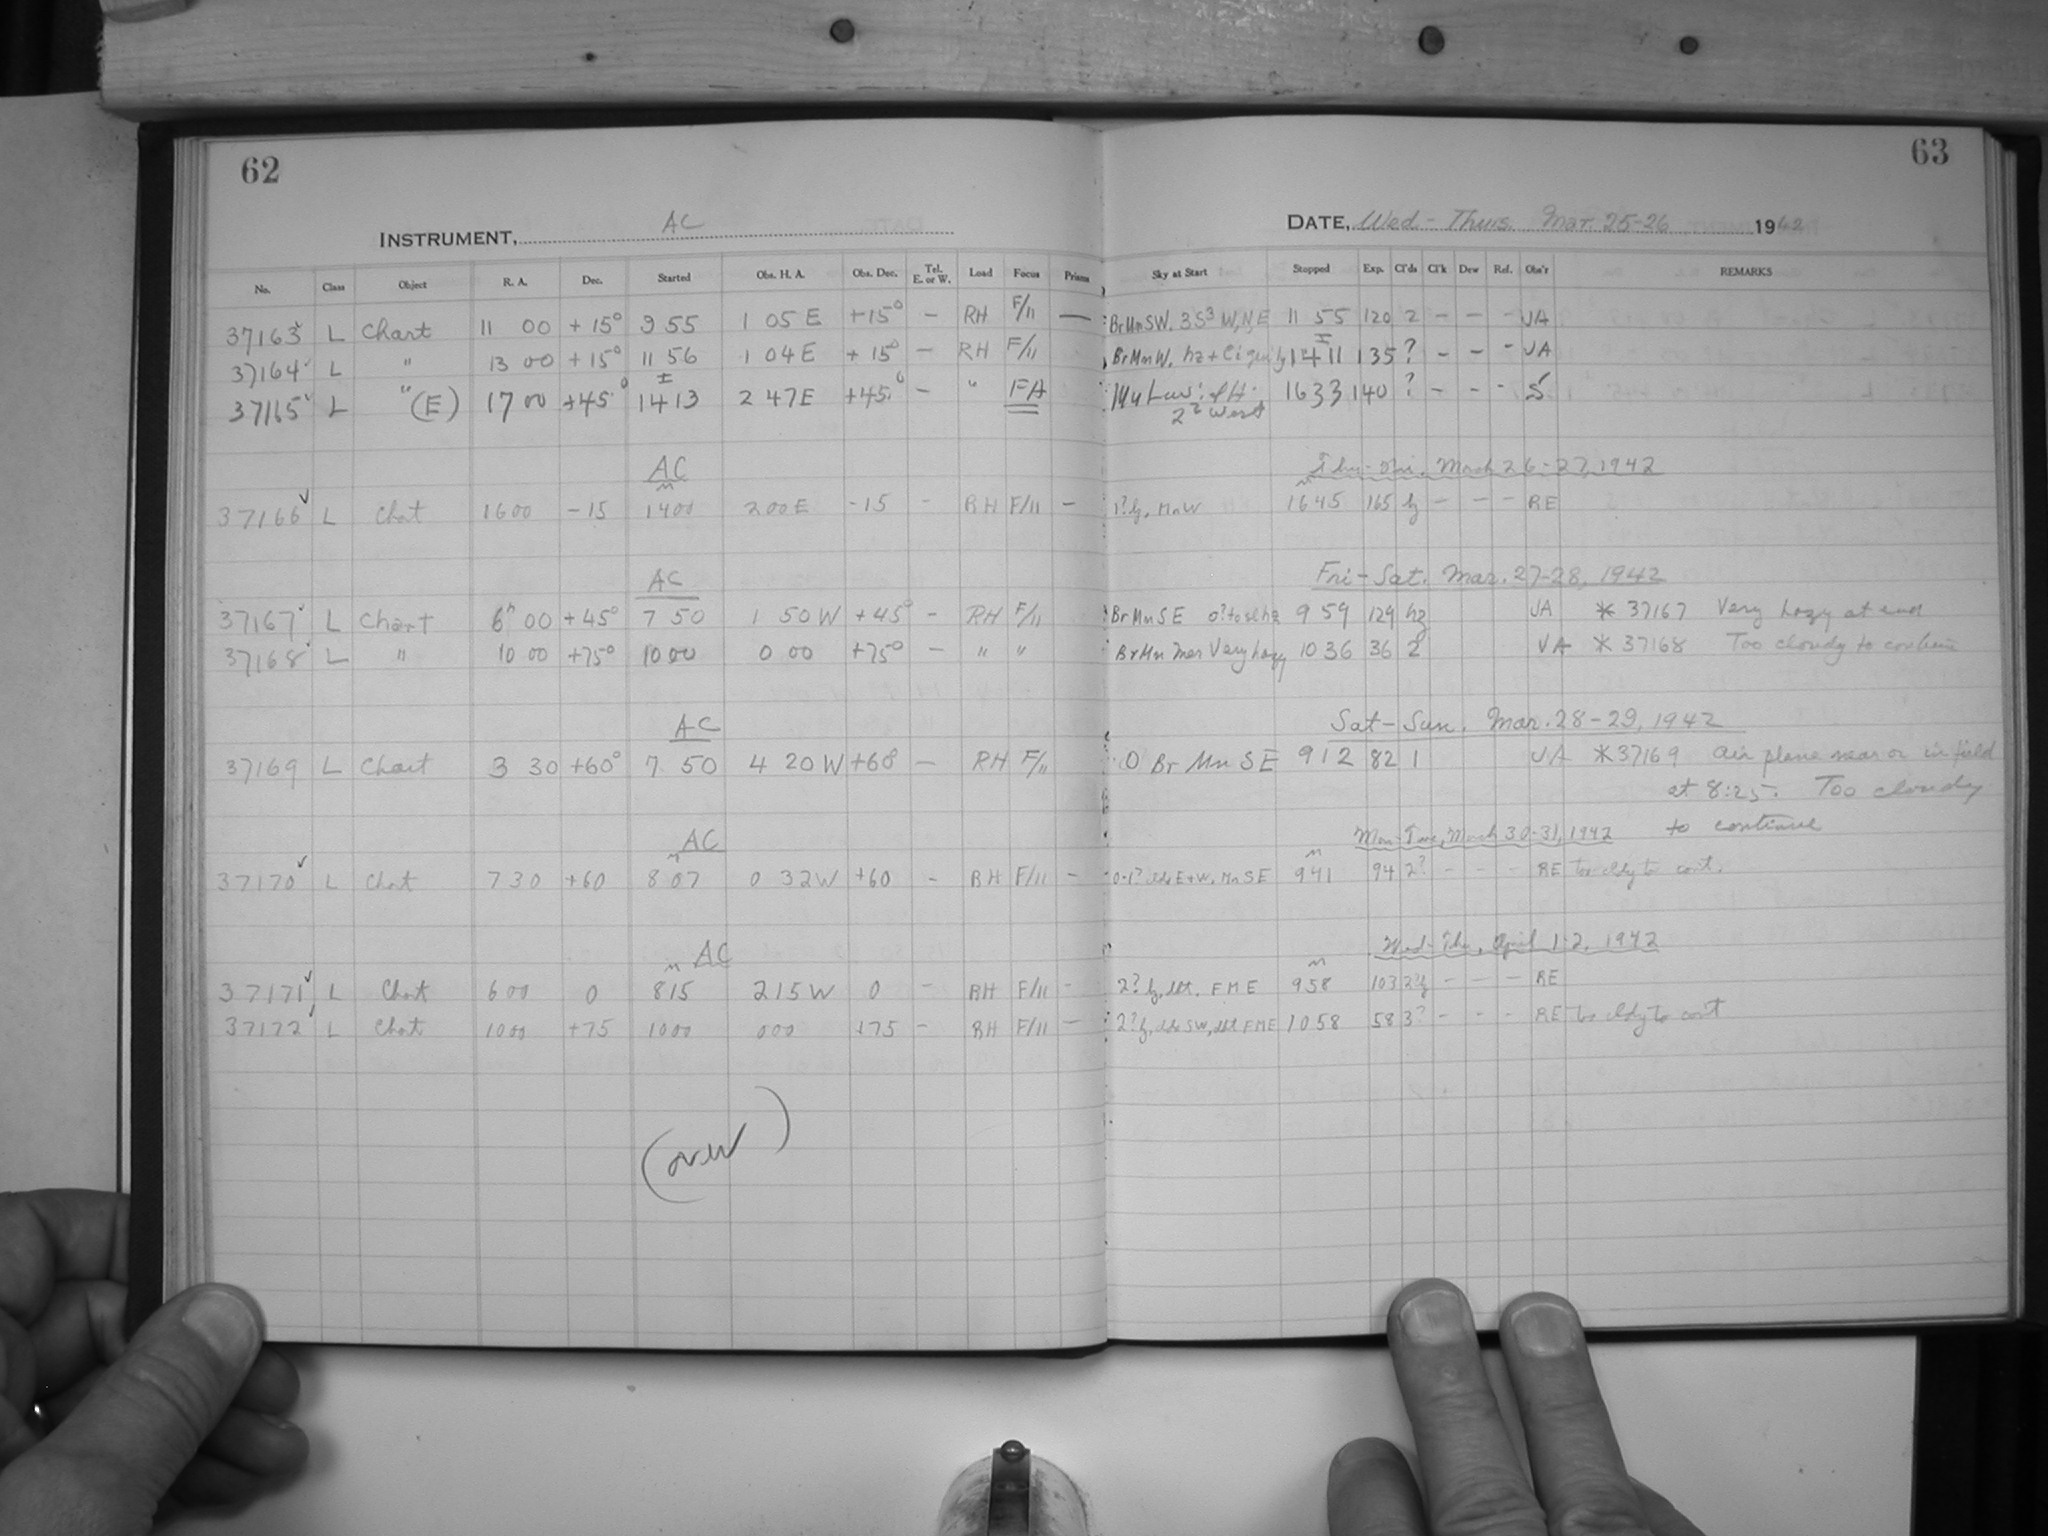 62
63
INSTRUMENT, AC
DATE, Wed - Thurs. Mar. 25-26 1942
No. Class Object R. A. Dec. Started Obs. H. A. Obs. Dec. Tel. E. or W. Load Focus Prisms Sky at Start Stopped Exp. Cl'ds Cl'k Dew Ref. Obs'r REMARKS
37163 L Chart 11 00 +15° 9 55 1 05 E +15° - RH F/11 — BrMnSW. W, N, E 11 55 120 2 - - - VA
37164 L " 13 00 +15° 11 56 1 04 E +15° - RH F/11 BrMnW. hz + 1411 135 ? - - - VA
37165 L " (E) 17 00 +45° 1413 2 47E +45° - " FA 1633 140 ? - - - S
2² West
AC Mach 26-27, 1942
37166 L Chat 1600 -15 1400 200E -15 - RH F/11 - MnW 1645 165 hz - - - RE
AC Fri - Sat. Mar. 27-28, 1942
37167 L Chart 6ʰ 00 +45° 7 50 1 50 W +45° - RH F/11 BrMnSE 9 59 129 hz VA * 37167 Very hazy at end
37168 L " 10 00 +75° 10 00 0 00 +75° - " " BrMn Mer Very hazy 10 36 36 2 VA * 37168 Too cloudy to continue
AC Sat - Sun. Mar. 28-29, 1942
37169 L Chart 3 30 +60° 7 50 4 20 W +60 - RH F/11 0 Br Mn SE 9 12 82 1 VA * 37169 air plane near or in field
at 8:25. Too cloudy
to continue
AC Mon-Tue, March 30-31, 1942
37170 L Chat 7 30 +60 8 07 0 32W +60 - RH F/11 - E+W, MnSE 941 94 2? - - - RE too cldy to cont.
AC Wed-Thu, April 1-2, 1942
37171 L Chat 6 00 0 815 215W 0 - RH F/11 - 2? FME 958 103 - - - RE
37172 L Chat 1000 +75 1000 000 +75 - RH F/11 - 2? SW, FME 1058 58 3? - - - RE too cldy to cont
(over)